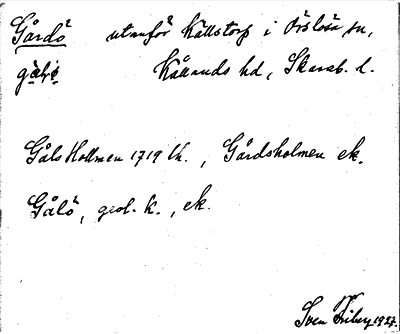 Gårdö utanför Källstorp i Örslösa sn,
gålö Kållands hd, Skarab. l.
Gåls Hollmen 1719 lk., Gårdsholmen ek.
Gålö, geol. k., ek.
Sven Friberg 1927.